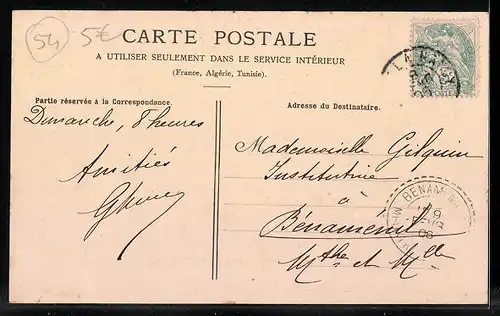 54 5€
CARTE POSTALE
A UTILISER SEULEMENT DANS LE SERVICE INTÉRIEUR
(France, Algérie, Tunisie).
Partie réservée à la Correspondance.
Adresse du Destinataire.
Dimanche, 8 heures
Amitiés
Mademoiselle Gilquin
Institutrice
à
Bénaménil
Mthe et Mlle
BENAMÉNIL